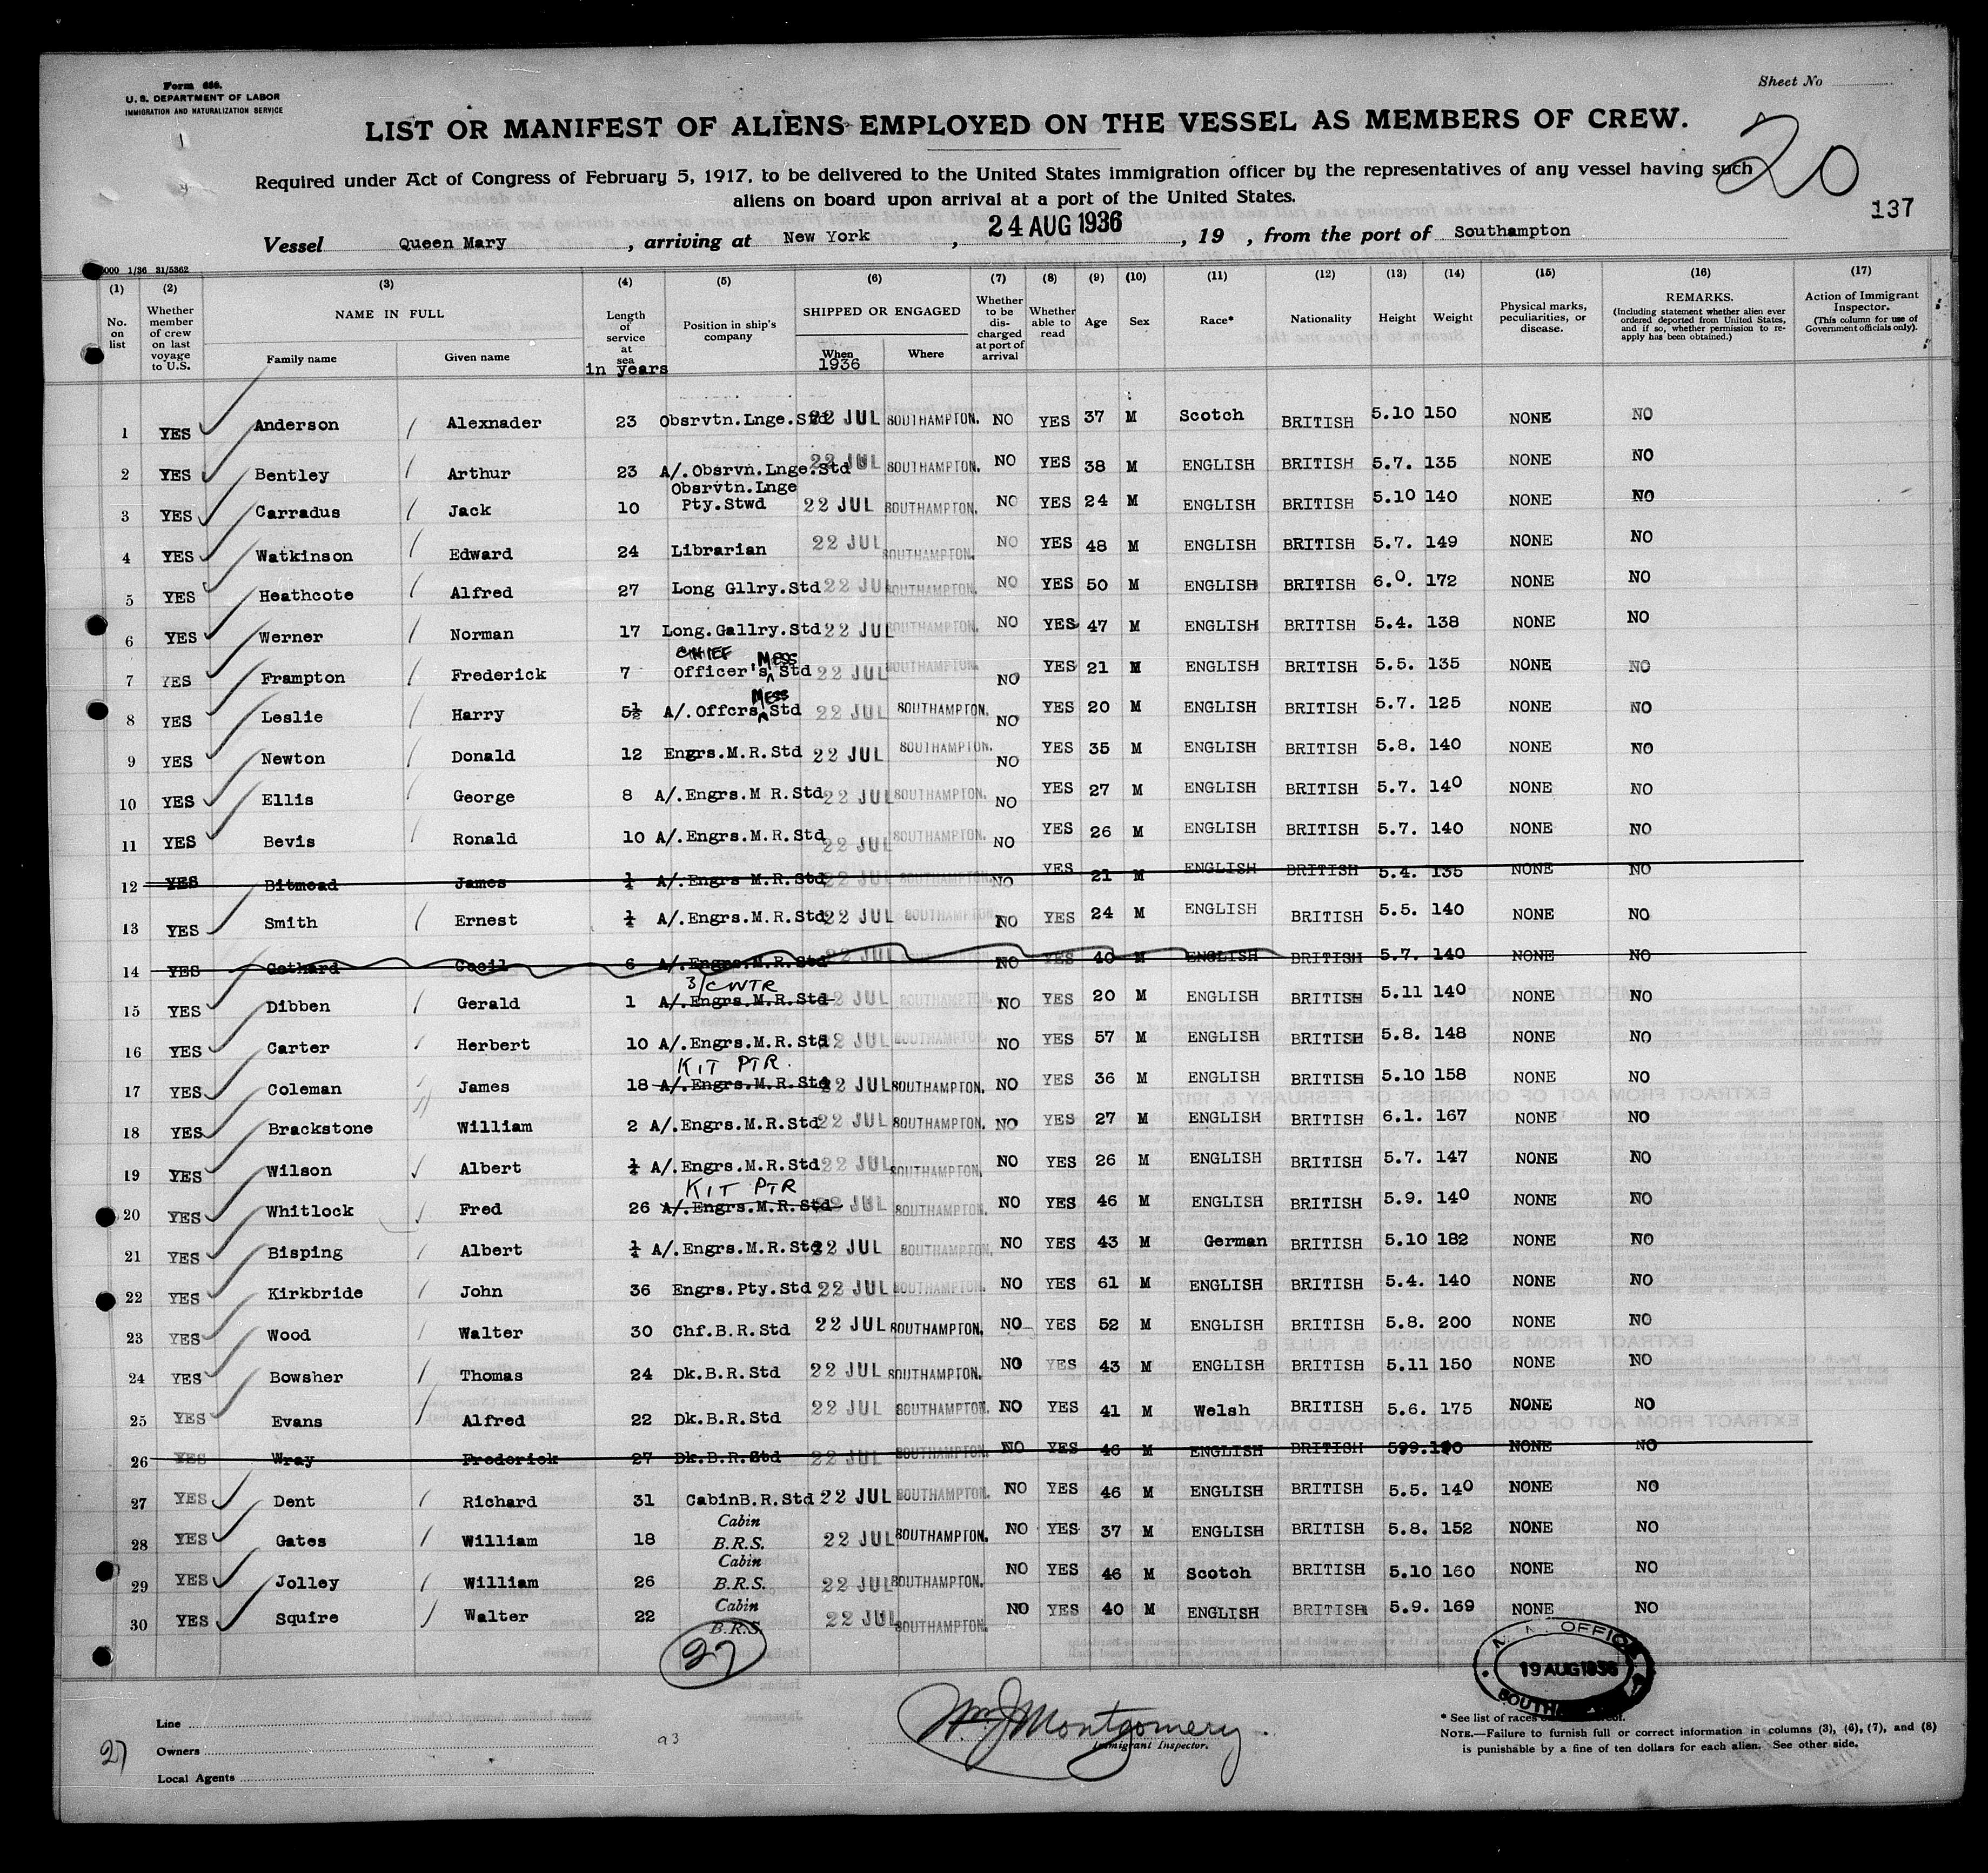 Form 689.
U. S. DEPARTMENT OF LABOR
IMMIGRATION AND NATURALIZATION SERVICE
Sheet No
LIST OR MANIFEST OF ALIENS EMPLOYED ON THE VESSEL AS MEMBERS OF CREW.
20
Required under Act of Congress of February 5, 1917, to be delivered to the United States immigration officer by the representatives of any vessel having such
aliens on board upon arrival at a port of the United States.
137
Vessel Queen Mary, arriving at New York, 24 AUG 1936, 19 , from the port of Southampton
000 1/36 31/5362
(1) (2) (3) (4) (5) (6) (7) (8) (9) (10) (11) (12) (13) (14) (15) (16) (17)
No. on list
Whether member of crew on last voyage to U.S.
NAME IN FULL
Family name
Given name
Length of service at sea
in years
Position in ship's company
SHIPPED OR ENGAGED
When
1936
Where
Whether to be discharged at port of arrival
Whether able to read
Age
Sex
Race*
Nationality
Height
Weight
Physical marks, peculiarities, or disease.
REMARKS.
(Including statement whether alien ever ordered deported from United States, and if so, whether permission to re-apply has been obtained.)
Action of Immigrant Inspector.
(This column for use of Government officials only).
1 YES Anderson Alexnader 23 Obsrvtn.Lnge.Std 22 JUL SOUTHAMPTON. NO YES 37 M Scotch BRITISH 5.10 150 NONE NO
2 YES Bentley Arthur 23 A/.Obsrvn.Lnge.Std 22 JUL SOUTHAMPTON. NO YES 38 M ENGLISH BRITISH 5.7. 135 NONE NO
3 YES Carradus Jack 10 Obsrvtn.Lnge Pty.Stwd 22 JUL SOUTHAMPTON. NO YES 24 M ENGLISH BRITISH 5.10 140 NONE NO
4 YES Watkinson Edward 24 Librarian 22 JUL SOUTHAMPTON. NO YES 48 M ENGLISH BRITISH 5.7. 149 NONE NO
5 YES Heathcote Alfred 27 Long Gllry.Std 22 JUL SOUTHAMPTON. NO YES 50 M ENGLISH BRITISH 6.0. 172 NONE NO
6 YES Werner Norman 17 Long.Gallry.Std 22 JUL SOUTHAMPTON. NO YES 47 M ENGLISH BRITISH 5.4. 138 NONE NO
7 YES Frampton Frederick 7 CHIEF Officer's MESS Std 22 JUL SOUTHAMPTON. NO YES 21 M ENGLISH BRITISH 5.5. 135 NONE NO
8 YES Leslie Harry 5½ A/.Offcrs MESS Std 22 JUL SOUTHAMPTON. NO YES 20 M ENGLISH BRITISH 5.7. 125 NONE NO
9 YES Newton Donald 12 Engrs.M.R.Std 22 JUL SOUTHAMPTON. NO YES 35 M ENGLISH BRITISH 5.8. 140 NONE NO
10 YES Ellis George 8 A/.Engrs.M R.Std 22 JUL SOUTHAMPTON. NO YES 27 M ENGLISH BRITISH 5.7. 140 NONE NO
11 YES Bevis Ronald 10 A/.Engrs.M.R.Std 22 JUL SOUTHAMPTON. NO YES 26 M ENGLISH BRITISH 5.7. 140 NONE NO
12 YES Bitmead James A/.Engrs M.R.Std 22 JUL SOUTHAMPTON NO YES 21 M ENGLISH BRITISH 5.4. 135 NONE NO
13 YES Smith Ernest A/.Engrs.M.R.Std 22 JUL SOUTHAMPTON NO YES 24 M ENGLISH BRITISH 5.5. 140 NONE NO
14 YES Gothard Cecil 6 A/.Engrs.M.R.Std 22 JUL NO YES 40 M ENGLISH BRITISH 5.7. 140 NONE NO
15 YES Dibben Gerald 1 3/CWTR A/.Engrs.M.R.Std 22 JUL SOUTHAMPTON. NO YES 20 M ENGLISH BRITISH 5.11 140 NONE NO
16 YES Carter Herbert 10 A/.Engrs.M.R.Std 22 JUL SOUTHAMPTON. NO YES 57 M ENGLISH BRITISH 5.8. 148 NONE NO
17 YES Coleman James 18 KIT PTR. A/.Engrs.M.R.Std 22 JUL SOUTHAMPTON. NO YES 36 M ENGLISH BRITISH 5.10 158 NONE NO
18 YES Brackstone William 2 A/.Engrs.M.R.Std 22 JUL SOUTHAMPTON. NO YES 27 M ENGLISH BRITISH 6.1. 167 NONE NO
19 YES Wilson Albert A/.Engrs.M.R.Std 22 JUL SOUTHAMPTON. NO YES 26 M ENGLISH BRITISH 5.7. 147 NONE NO
20 YES Whitlock Fred 26 KIT PTR A/.Engrs.M.R.Std 22 JUL SOUTHAMPTON. NO YES 46 M ENGLISH BRITISH 5.9. 140 NONE NO
21 YES Bisping Albert A/.Engrs.M.R.Std 22 JUL SOUTHAMPTON. NO YES 43 M German BRITISH 5.10 182 NONE NO
22 YES Kirkbride John 36 Engrs.Pty.Std 22 JUL SOUTHAMPTON. NO YES 61 M ENGLISH BRITISH 5.4. 140 NONE NO
23 YES Wood Walter 30 Chf.B.R.Std 22 JUL SOUTHAMPTON. NO YES 52 M ENGLISH BRITISH 5.8. 200 NONE NO
24 YES Bowsher Thomas 24 Dk.B.R.Std 22 JUL SOUTHAMPTON. NO YES 43 M ENGLISH BRITISH 5.11 150 NONE NO
25 YES Evans Alfred 22 Dk.B.R.Std 22 JUL SOUTHAMPTON. NO YES 41 M Welsh BRITISH 5.6. 175 NONE NO
26 YES Wray Frederick 27 Dk.B.R.Std 22 JUL SOUTHAMPTON. NO YES 46 M ENGLISH BRITISH NONE NO
27 YES Dent Richard 31 CabinB.R.Std 22 JUL SOUTHAMPTON. NO YES 46 M ENGLISH BRITISH 5.5. 140 NONE NO
28 YES Gates William 18 Cabin B.R.S. 22 JUL SOUTHAMPTON. NO YES 37 M ENGLISH BRITISH 5.8. 152 NONE NO
29 YES Jolley William 26 Cabin B.R.S. 22 JUL SOUTHAMPTON. NO YES 46 M Scotch BRITISH 5.10 160 NONE NO
30 YES Squire Walter 22 Cabin B.R.S. 22 JUL SOUTHAMPTON. NO YES 40 M ENGLISH BRITISH 5.9. 169 NONE NO
27
OFFICE
19 AUG 1936
Line
Owners
Local Agents
27
93
Wm J Montgomery.
Immigrant Inspector.
* See list of races
NOTE.—Failure to furnish full or correct information in columns (3), (6), (7), and (8)
is punishable by a fine of ten dollars for each alien. See other side.